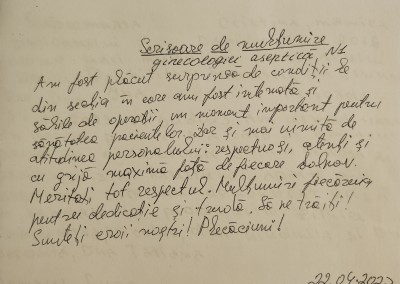 Scrisoare de mulțumire
ginecologici aseptică N1
Am fost plăcut surprinsă de condiții le
din secția în care am fost internată și
sălile de operații, un moment important pentru
sănătatea pacientelor, dar și mai uimită de
atitudinea personalului: respectuoși, atenți și
cu grijă maximă față de fiecare bolnav.
Meritați tot respectul. Mulțumiri fiecăruia
pentru dedicație și trudă. Să ne trăiți!
Sunteți eroii noștri! Plecăciuni!
22.04.202